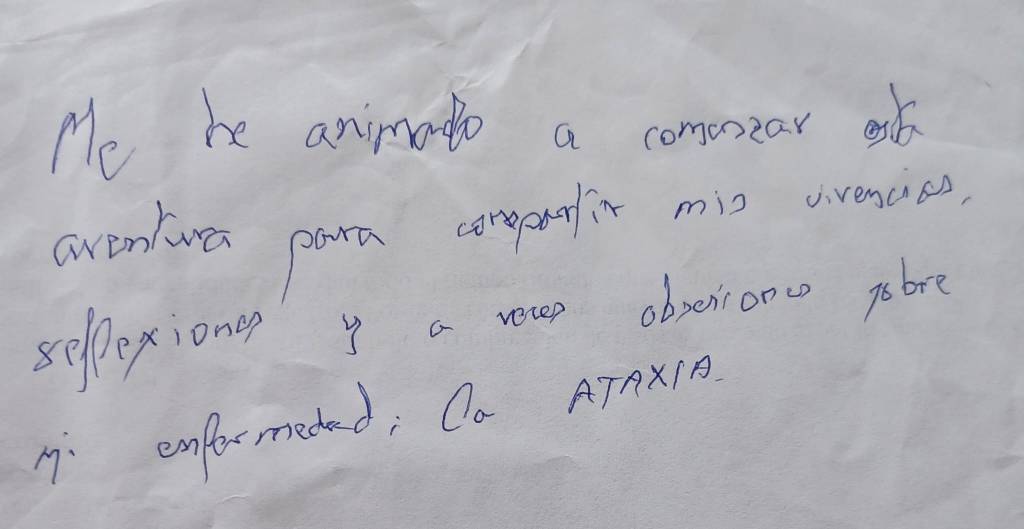 Me he animado a comenzar esta
aventura para compartir mis vivencias,
reflexiones y a veces obsesiones sobre
mi enfermedad; la ATAXIA.